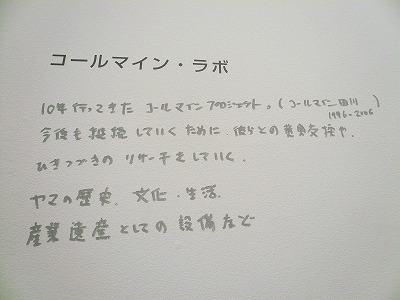 コールマイン・ラボ
10年行ってきた コールマインプロジェクト。(コールマイン田川 1996-2006)
今後も 継続していくために 彼らとの 意見交換や、
ひきつづきの リサーチをしていく。
ヤマの歴史、文化・生活、
産業遺産としての設備など